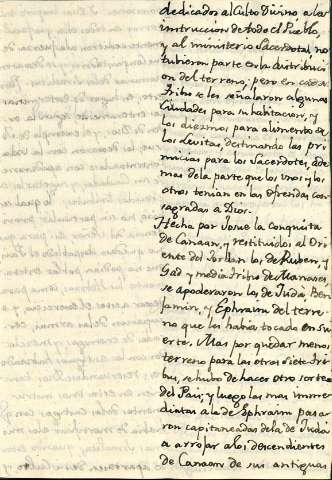 dedicados al Culto Divino a la
instruccion de todo el Pueblo,
y al ministerio Sacerdotal, no
tubieron parte en la distribuci
on del terreno; pero en cada
Tribu se les señalaron algunas
Ciudades para su habitacion, y
los diezmos para alimento de
los Levitas, destinando las pri
micias para los Sacerdotes, ade
mas de la parte que los unos y los
otros tenian en las ofrendas con
sagradas a Dios.
Hecha por Josue la Conquista
de Canaan, y restituidos al Ori
ente del Jordan los de Ruben, y
Gad y media tribu de Manases,
se apoderaron los de Judà, Ben
jamin, y Ephraim del terre
no que les habia tocado en su
erte. Mas por quedar menos
terreno para las otras siete Tri
bus, se hubo de hacer otro sorteo
del Pais; y luego las mas imme
diatas a la de Ephraim pasa
ron capitaneadas de la de Judà
a arrojar a los descendientes
de Canaan de sus antiguas